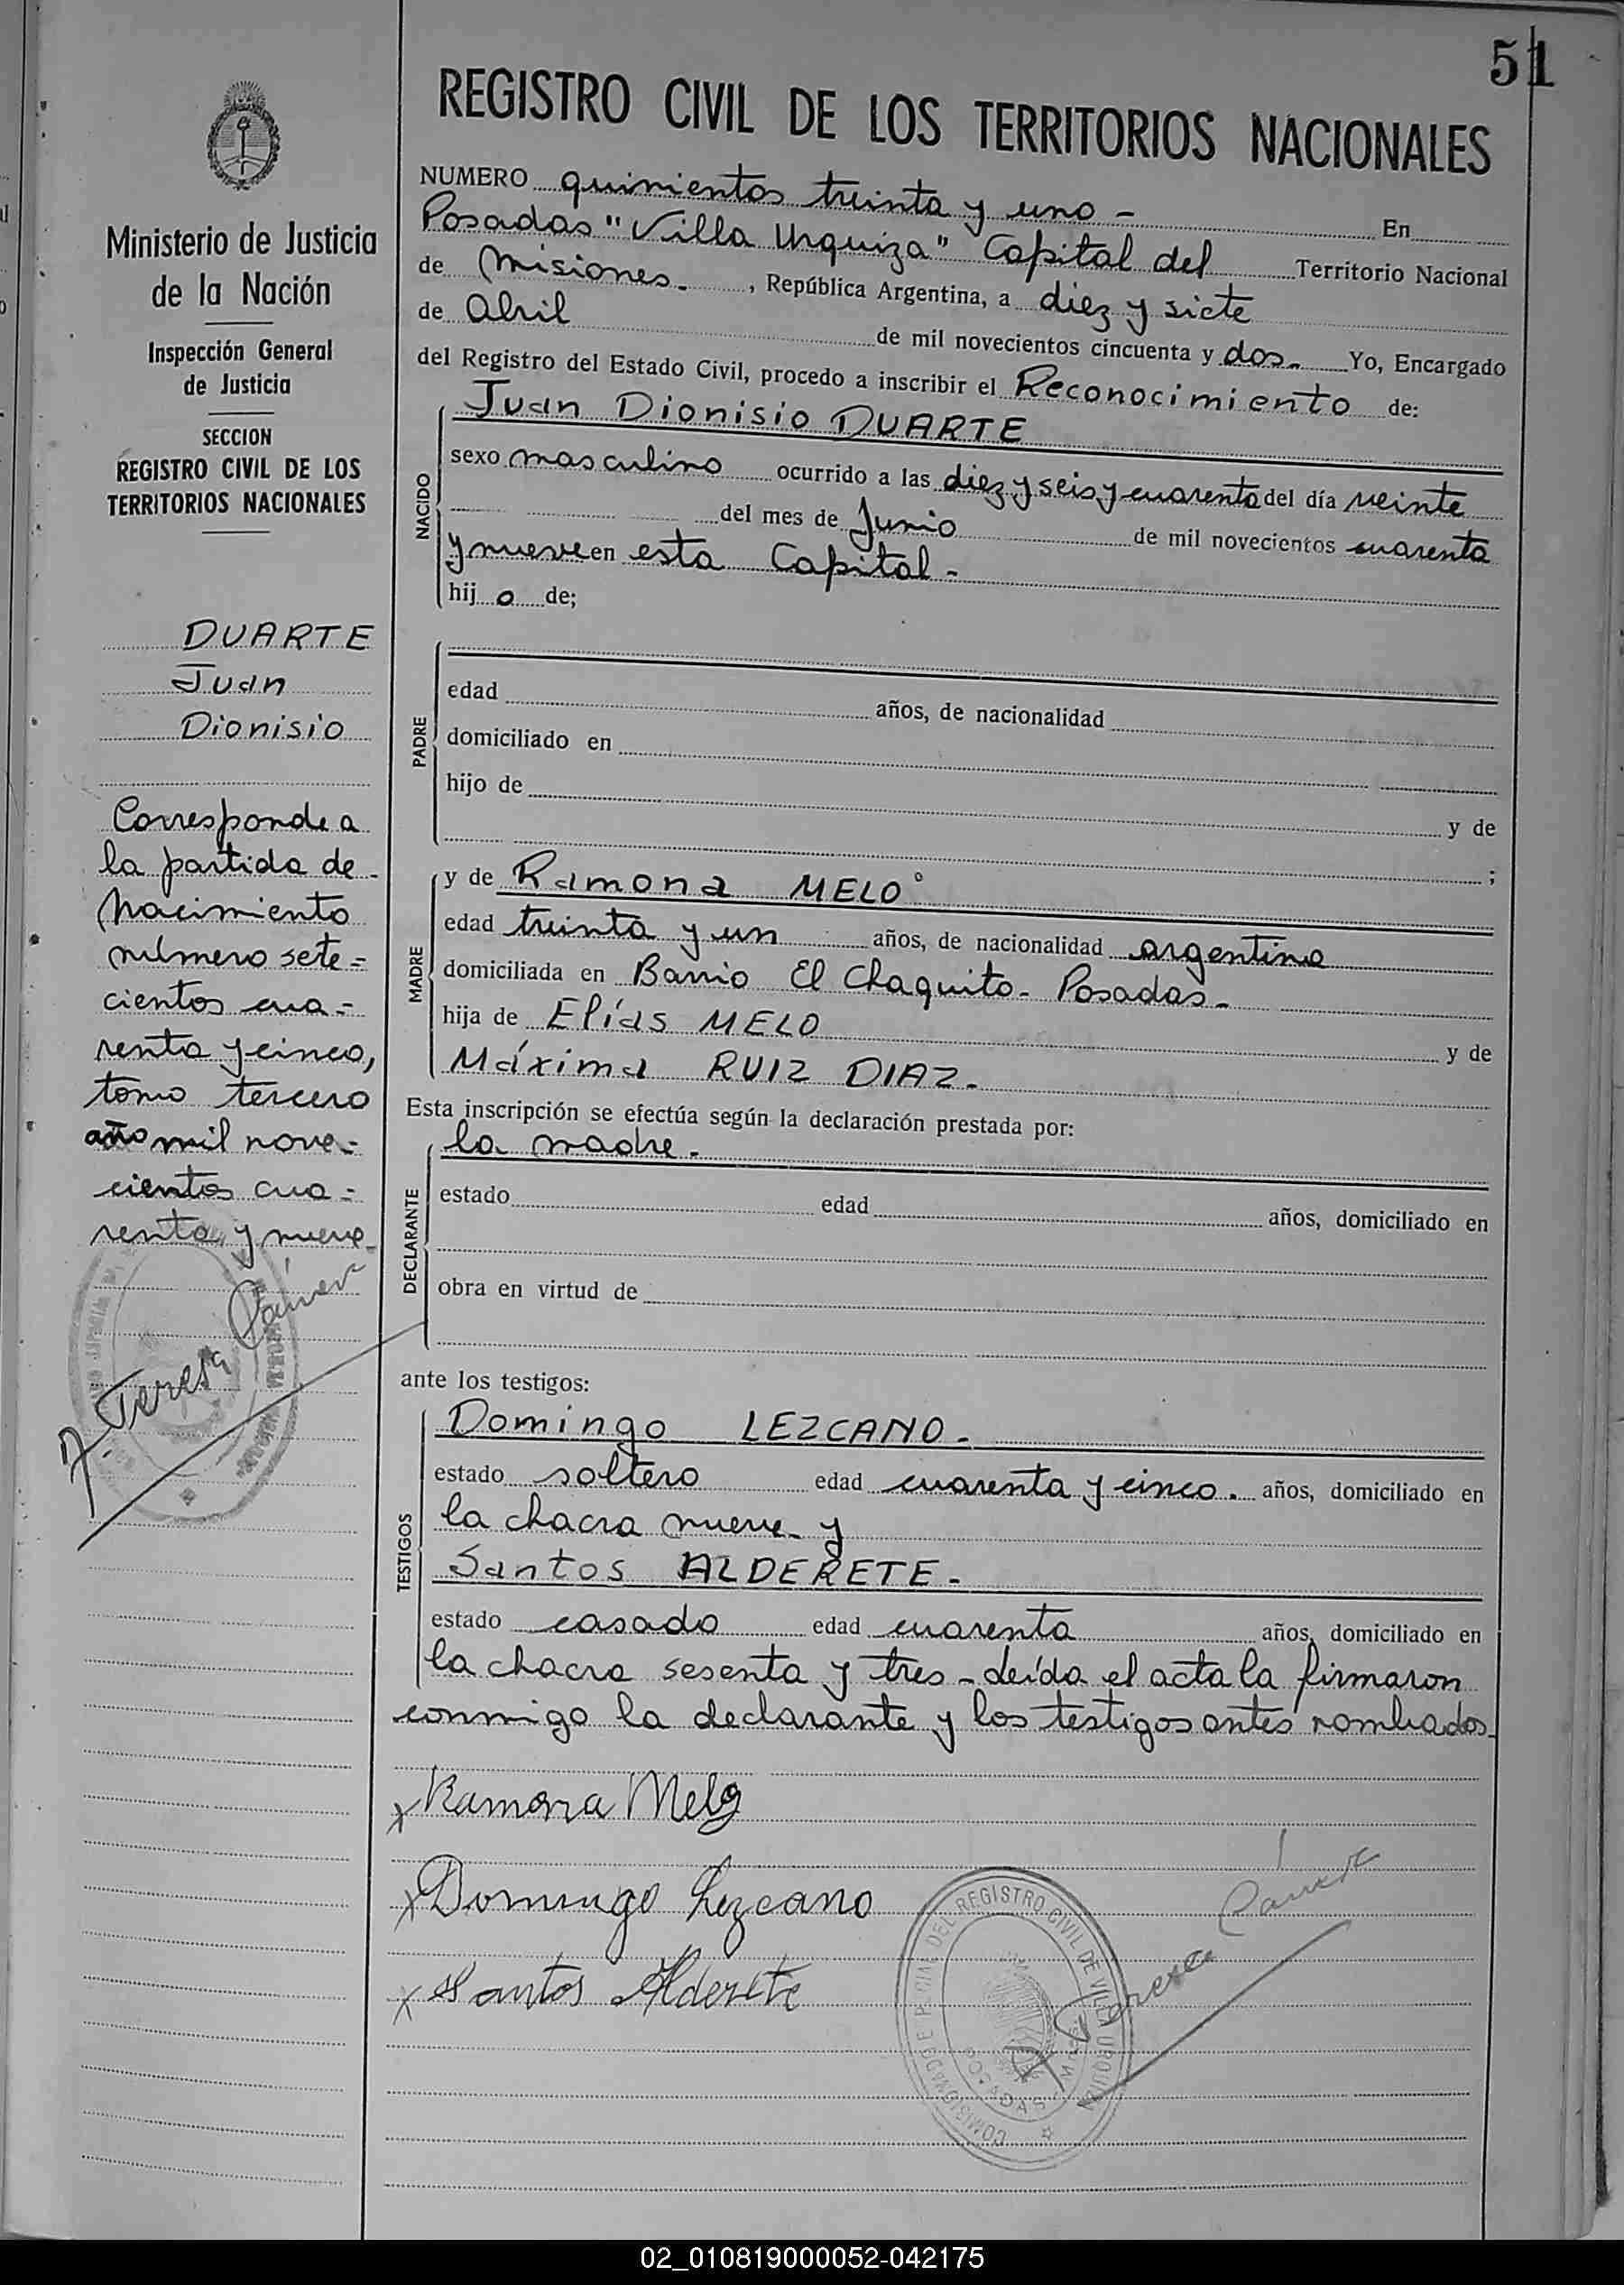 51
REGISTRO CIVIL DE LOS TERRITORIOS NACIONALES
Ministerio de Justicia
de la Nación
Inspección General
de Justicia
SECCION
REGISTRO CIVIL DE LOS
TERRITORIOS NACIONALES
DUARTE
Juan
Dionisio
Corresponde a
la partida de
Nacimiento
número sete=
cientos cua=
renta y cinco,
tomo tercero
año mil nove=
cientos cua=
renta y nueve
Teresa
NUMERO quinientos treinta y uno - En
Posadas "Villa Urquiza" Capital del Territorio Nacional
de Misiones. , República Argentina, a diez y siete
de Abril de mil novecientos cincuenta y dos. Yo, Encargado
del Registro del Estado Civil, procedo a inscribir el Reconocimiento de:
NACIDO
Juan Dionisio DUARTE
sexo masculino ocurrido a las diez y seis y cuarenta del día veinte
del mes de Junio de mil novecientos cuarenta
y nueve en esta Capital -
hij o de;
PADRE
edad años, de nacionalidad
domiciliado en
hijo de y de
;
MADRE
y de Ramona MELO
edad treinta y un años, de nacionalidad argentina
domiciliada en Barrio El Chaquito - Posadas -
hija de Elías MELO y de
Máxima RUIZ DIAZ -
Esta inscripción se efectúa según la declaración prestada por:
DECLARANTE
la madre -
estado edad años, domiciliado en
obra en virtud de
ante los testigos:
TESTIGOS
Domingo LEZCANO -
estado soltero edad cuarenta y cinco . años, domiciliado en
la chacra nueve - y
Santos ALDERETE -
estado casado edad cuarenta años, domiciliado en
la chacra sesenta y tres - Leída el acta la firmaron
conmigo la declarante y los testigos antes nombrados
x Ramona Melo
x Domingo Lezcano
x Santos Alderete
COMISIONADO DEL REGISTRO CIVIL DE VILLA URQUIZA
POSADAS
Teresa
02_010819000052-042175